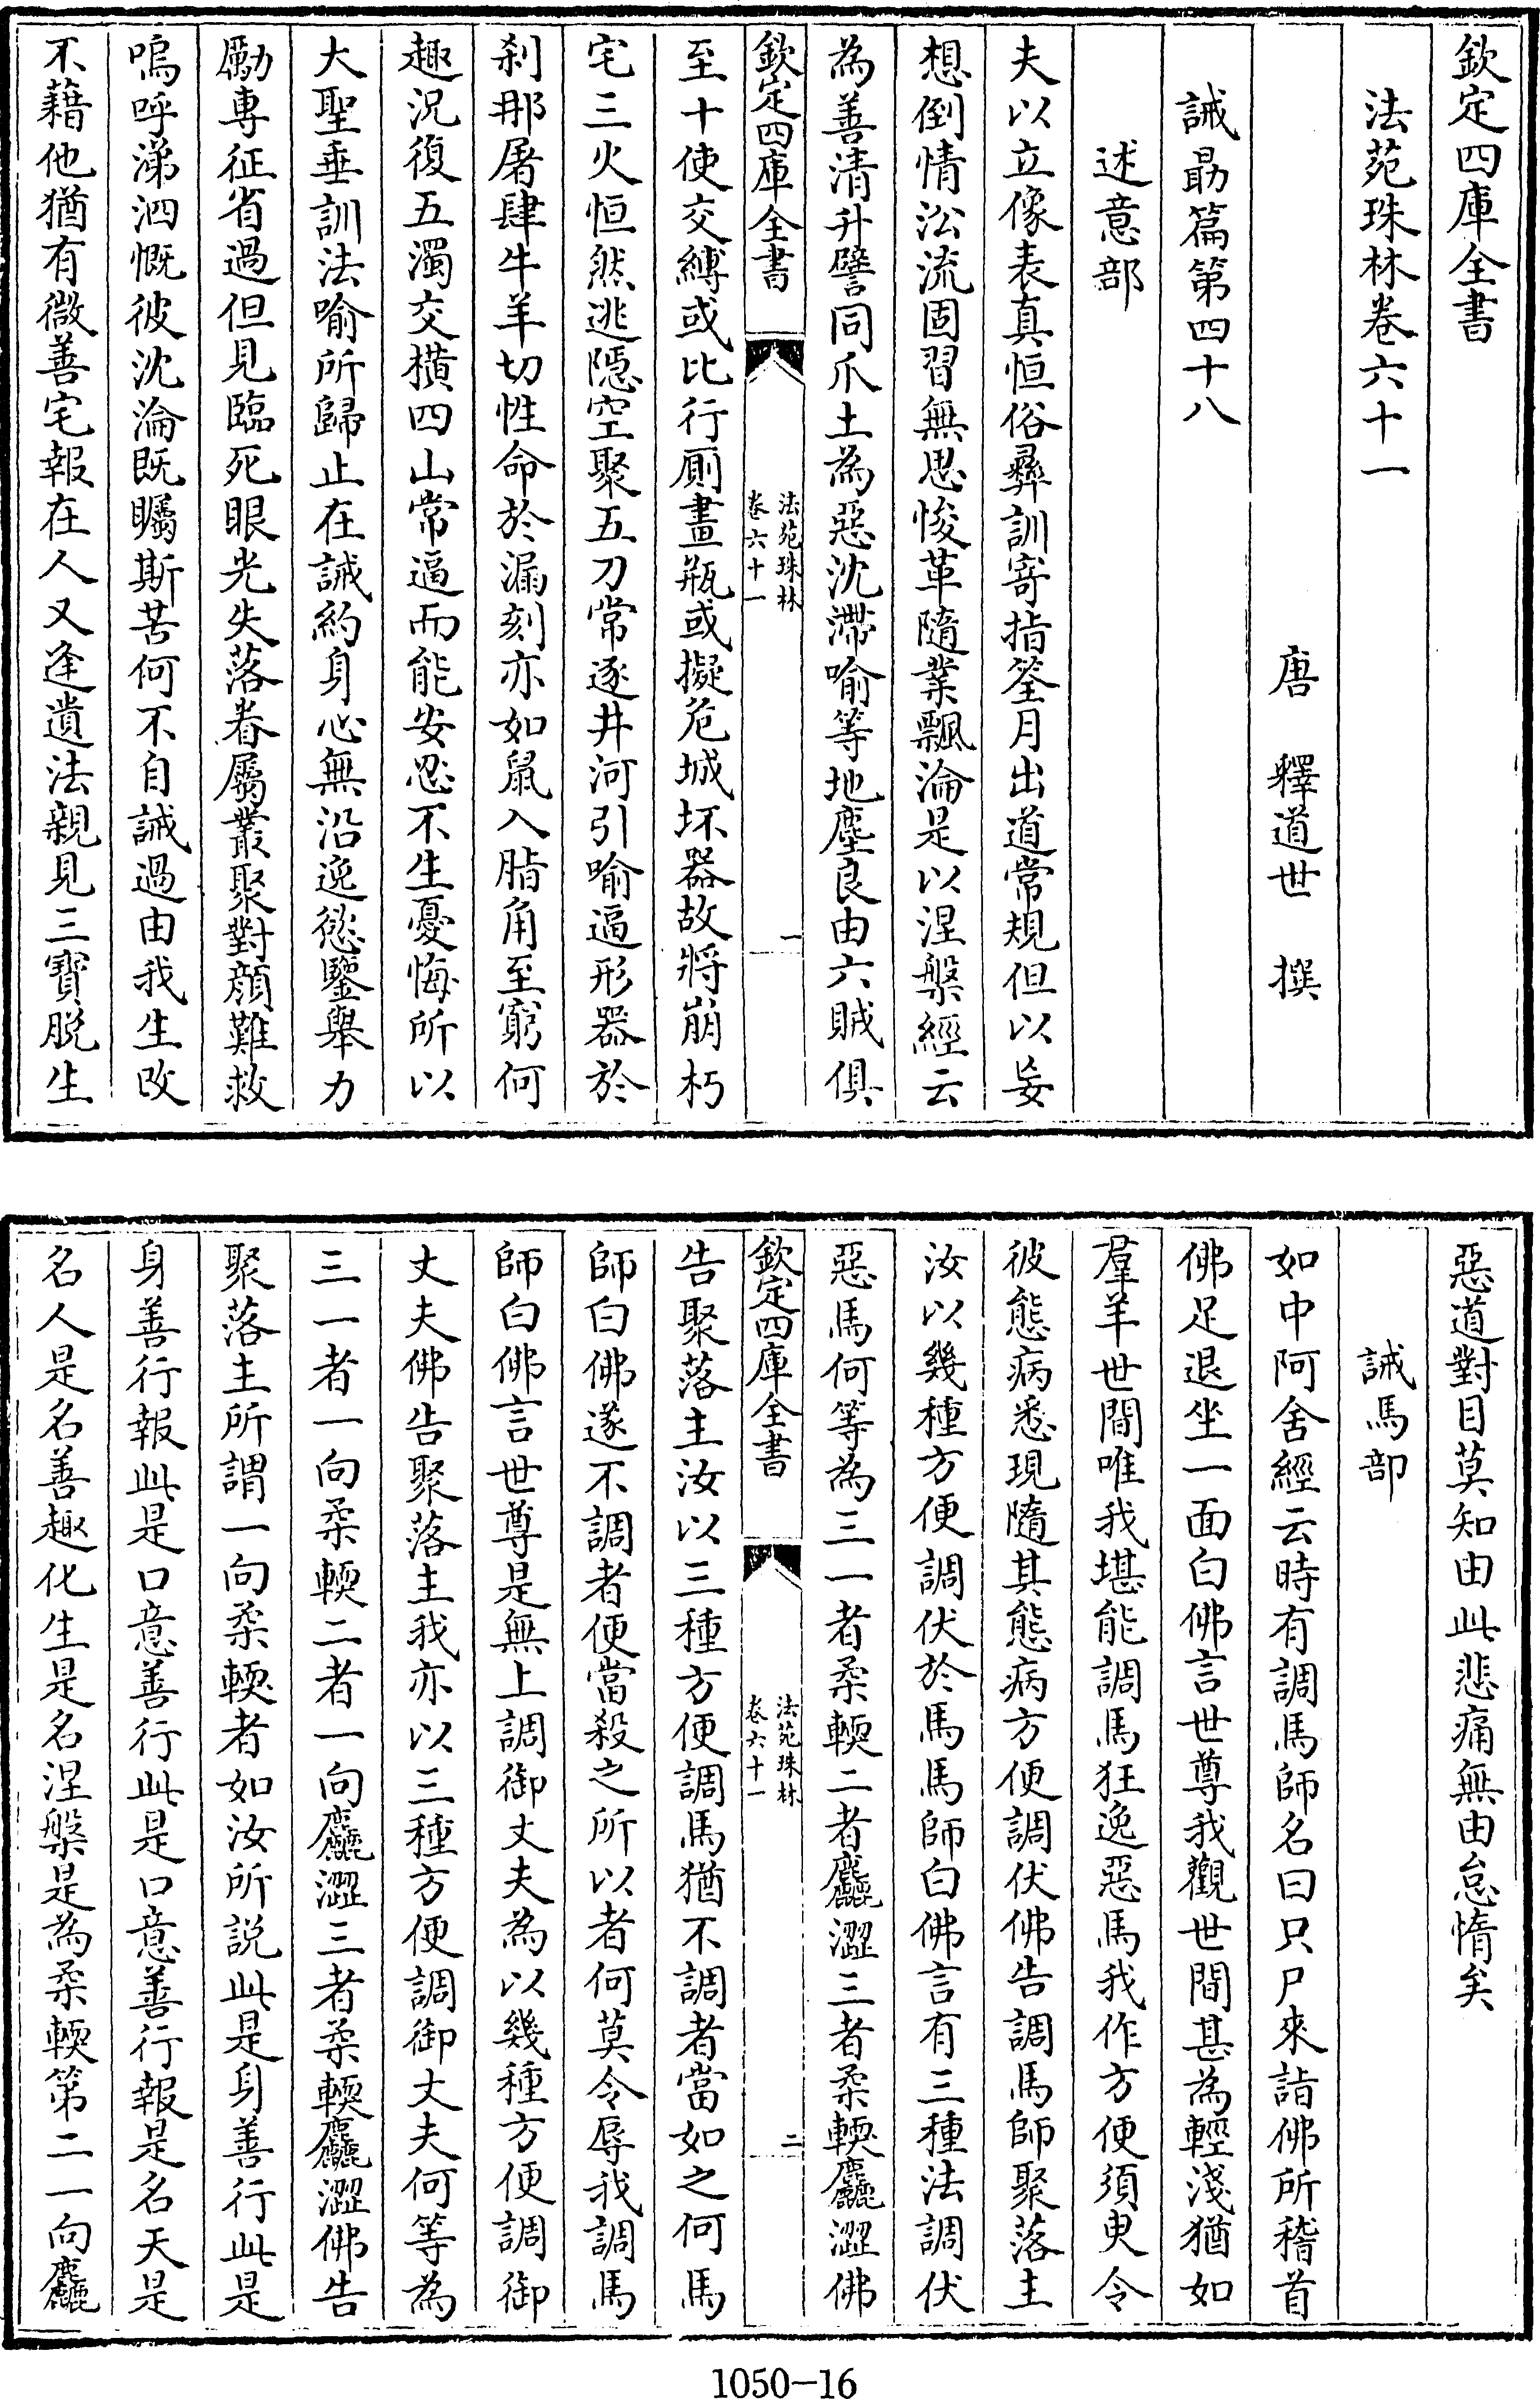 欽定四庫全書
法苑珠林卷六十一
唐　釋道世　撰
誡勗篇第四十八
述意部
夫以立像表真恒俗彞訓寄指筌月出道常規但以妄
想倒情沿流固習無思悛革隨業飄淪是以涅槃經云
為善清升譬同爪土為惡沈滯喻等地塵良由六賊俱
欽定四庫全書
法苑珠林
卷六十一
一
至十使交縛或比行厠畫瓶或擬危城坏器故將崩朽
宅三火恒然逃隱空聚五刀常逐井河引喻逼形器於
刹那屠肆牛羊切性命於漏刻亦如鼠入脂角至窮何
趣況復五濁交橫四山常逼而能安忍不生憂悔所以
大聖垂訓法喻所歸止在誡約身心無沿逸慾鑒舉力
勵專征省過但見臨死眼光失落眷屬叢聚對顔難救
嗚呼涕泗慨彼沈淪既矚斯苦何不自誡過由我生改
不藉他猶有微善宅報在人又逢遺法親見三寶脫生
惡道對目莫知由此悲痛無由怠惰矣
誡馬部
如中阿含經云時有調馬師名曰只尸來詣佛所稽首
佛足退坐一面白佛言世尊我觀世間甚為輕淺猶如
羣羊世間唯我堪能調馬狂逸惡馬我作方便須臾令
彼態病悉現隨其態病方便調伏佛告調馬師聚落主
汝以幾種方便調伏於馬馬師白佛言有三種法調伏
惡馬何等為三一者柔輭二者麤澀三者柔輭麤澀佛
欽定四庫全書
法苑珠林
卷六十一
二
告聚落主汝以三種方便調馬猶不調者當如之何馬
師白佛遂不調者便當殺之所以者何莫令辱我調馬
師白佛言世尊是無上調御丈夫為以幾種方便調御
丈夫佛告聚落主我亦以三種方便調御丈夫何等為
三一者一向柔輭二者一向麤澀三者柔輭麤澀佛告
聚落主所謂一向柔輭者如汝所説此是身善行此是
身善行報此是口意善行此是口意善行報是名天是
名人是名善趣化生是名涅槃是為柔輭第二一向麤
1050-16